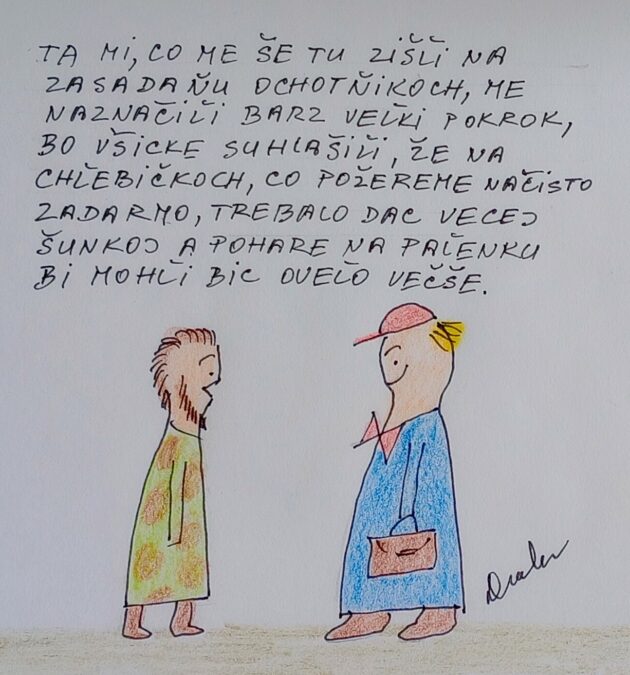 TA MI, CO ME ŠE TU ZIŠĽI NA
ZASADAŇU OCHOTŇIKOCH, ME
NAZNAČIĽI BARZ VEĽKI POKROK,
BO VŠICKE SUHLAŠIĽI, ŽE NA
CHĽEBIČKOCH, CO POŽEREME NAČISTO
ZADARMO, TREBALO DAC VECEJ
ŠUNKOJ A POHARE NA PAĽENKU
BI MOHĽI BIC OVEĽO VEČŠE.